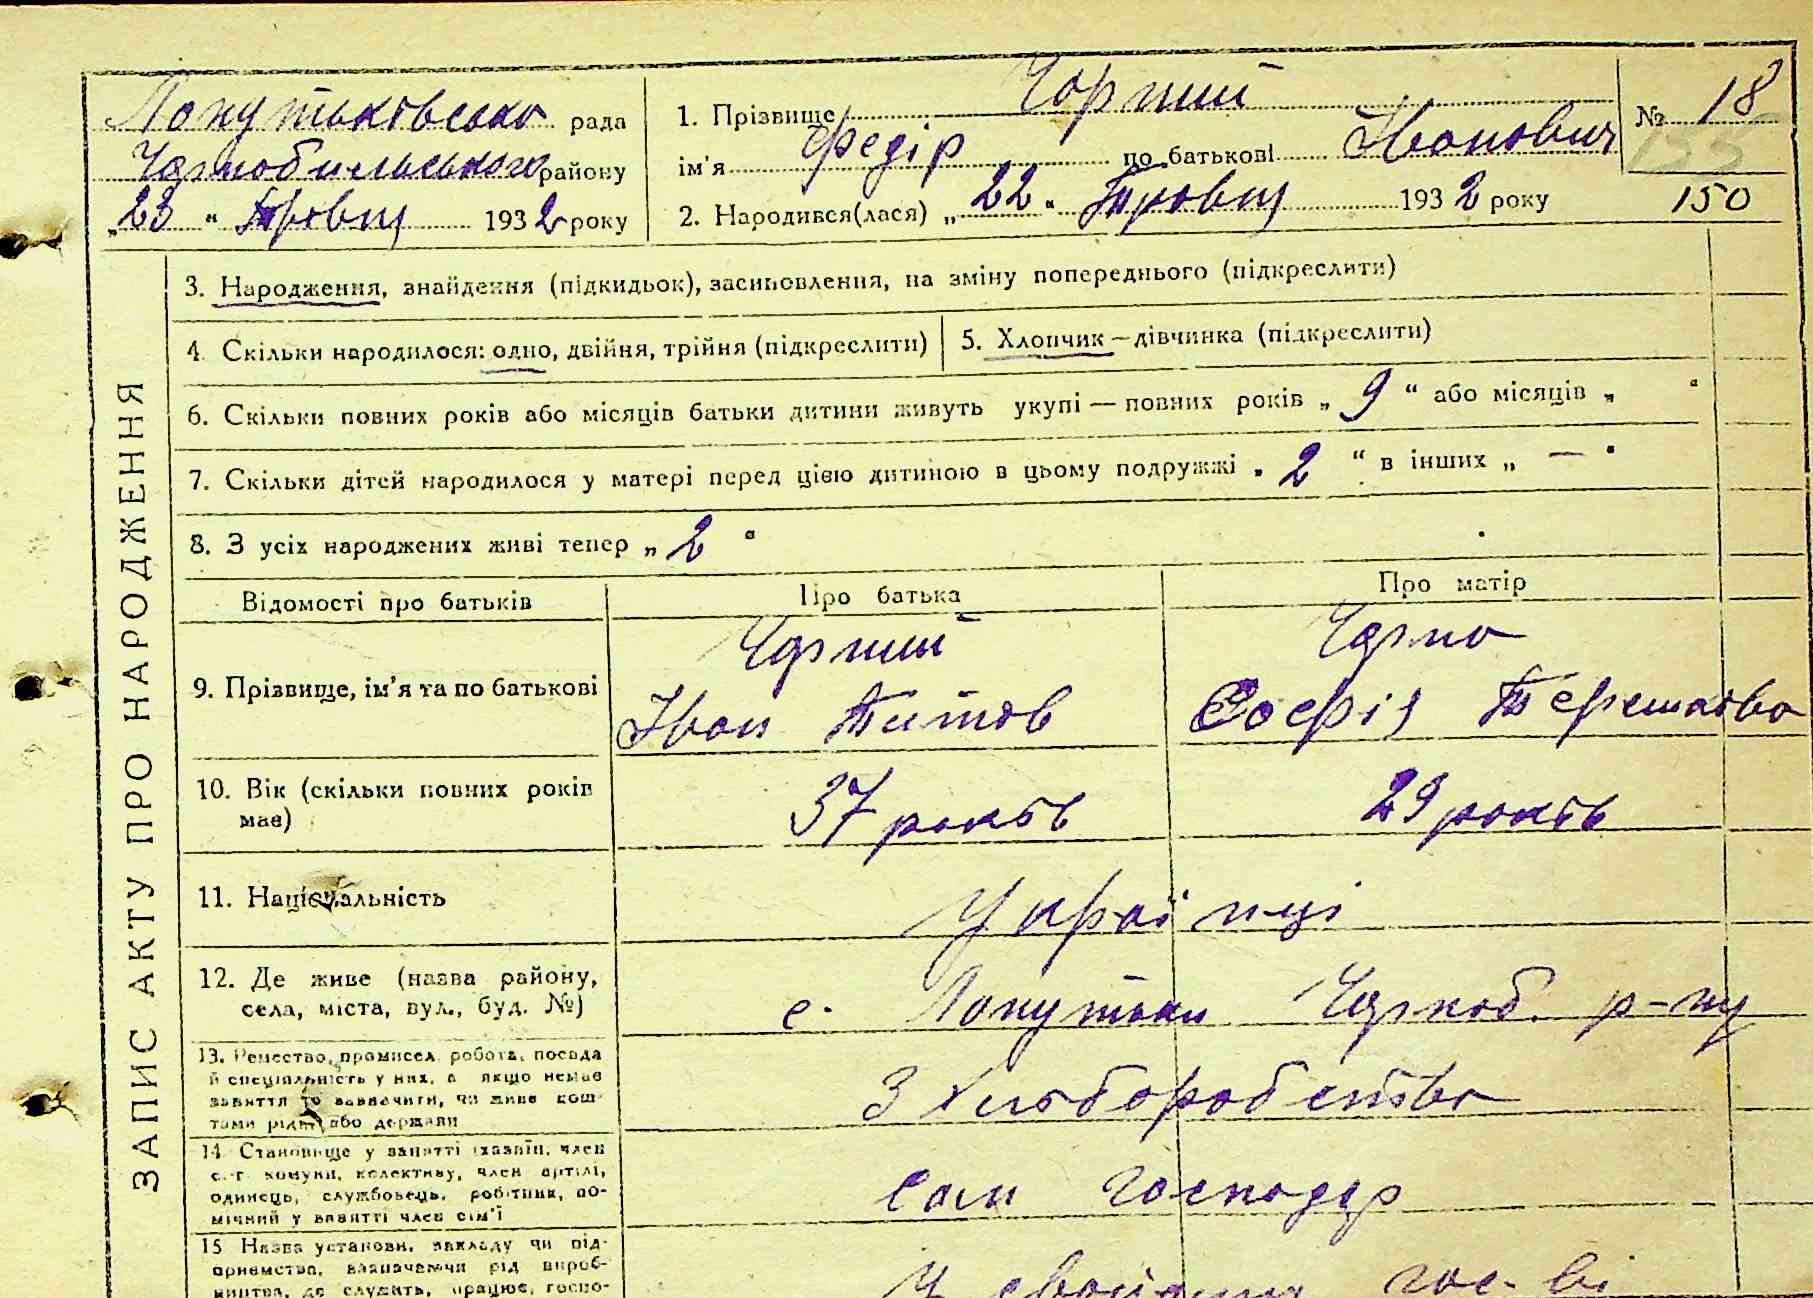 Лопутьківська рада
Чорнобильського району
„23 “ Травня 1932 року
1. Прізвище Чорний
ім'я Федір по батькові Іванович
2. Народився(лася) „ 22 “ Травня 1932 року
№ 18
155
150
ЗАПИС АКТУ ПРО НАРОДЖЕННЯ
3. Народження, знайдення (підкидьок), засиновлення, на зміну попереднього (підкреслити)
4. Скільки народилося: одно, двійня, трійня (підкреслити)
5. Хлопчик — дівчинка (підкреслити)
6. Скільки повних років або місяців батьки дитини живуть укупі — повних років „ 9 “ або місяців „ “
7. Скільки дітей народилося у матері перед цією дитиною в цьому подружжі „ 2 “ в інших „ — “
8. З усіх народжених живі тепер „ 2 “
Відомості про батьків Про батька Про матір
9. Прізвище, ім'я та по батькові
Чорний
Іван Титов
Чорна
Софія Терешкова
10. Вік (скільки повних років має)
37 років 29 років
11. Національність Українці
12. Де живе (назва району,
села, міста, вул., буд. №)
с. Лопутьки Чорноб. р-ну
13. Ремество, промисел, робота, посада
й спеціяльність у них, а якщо немає
заняття то зазначити, чи живе кош-
тами рідні або держави
З хліборобства
14. Становище у занятті (хазяїн, член
с.-г. комуни, колективу, член артілі,
одинець, службовець, робітник, по-
мічний у занятті член сім'ї
Сам господар
15 Назва установи, закладу чи під-
приємства, зазначаючи рід вироб-
ництва, де служить, працює, госпо-
У своїому гос-ві